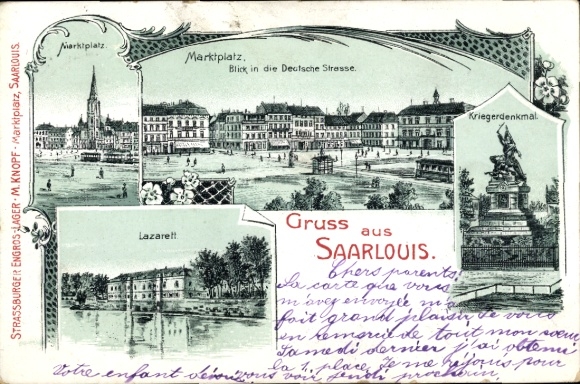 Marktplatz.
Marktplatz.
Blick in die Deutsche Strasse.
Kriegerdenkmal.
Lazarett
Gruss aus
SAARLOUIS.
STRASSBURGER ENGROS-LAGER · M. KNOPF · Marktplatz, SAARLOUIS.
Chers parents!
La carte que vous
m'avez envoyée m'a
fait grand plaisir Je vous
en remercie de tout mon coeur
Samedi dernier j'ai obtenu
la 1. place. Je me réjouis pour
vous voir jeudi prochain
Votre enfant